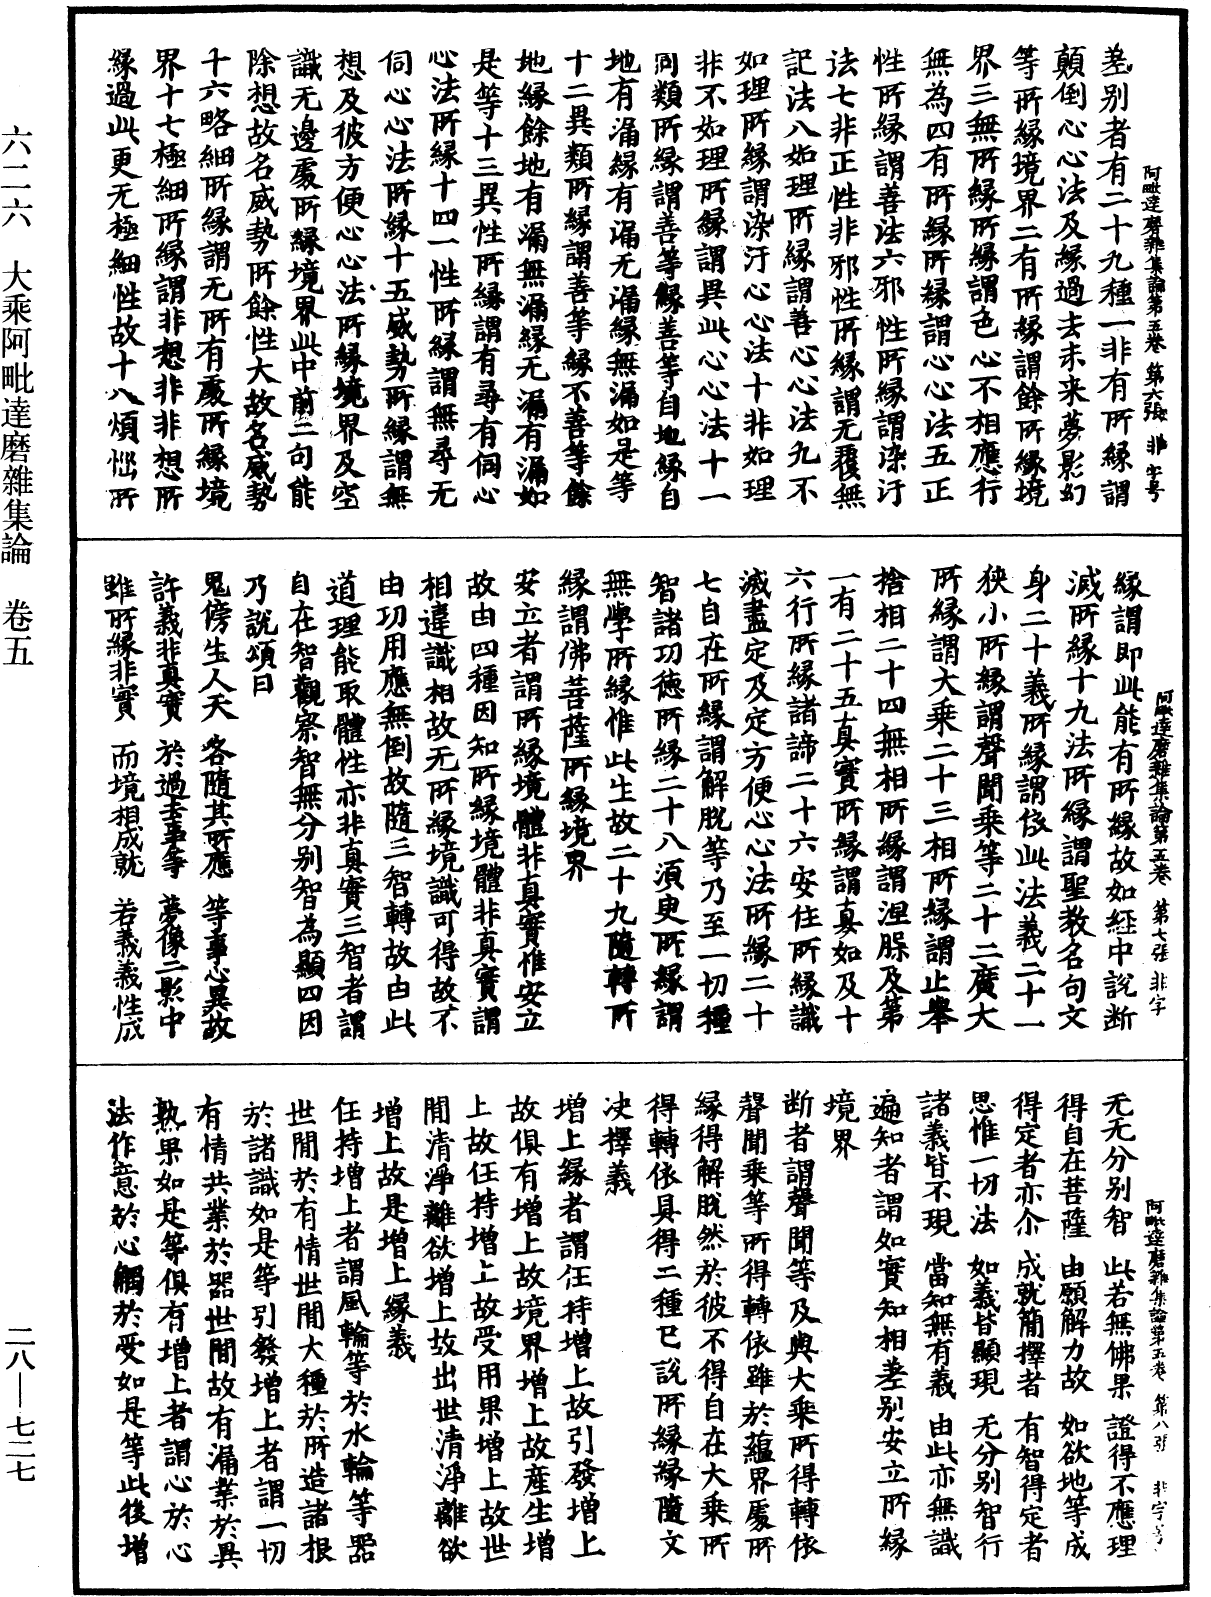 阿毗達磨雜集論第五卷 第六張 非字号
差别者有二十九種一非有所緣謂
顛倒心心法及緣過去未来夢影幻
等所緣境界二有所緣謂餘所緣境
界三無所緣所緣謂色心不相應行
無為四有所緣所緣謂心心法五正
性所緣謂善法六邪性所緣謂染汙
法七非正性非邪性所緣謂无覆無
記法八如理所緣謂善心心法九不
如理所緣謂染汙心心法十非如理
非不如理所緣謂異此心心法十一
同類所緣謂善等緣善等自地緣自
地有漏緣有漏无漏緣無漏如是等
十二異類所緣謂善等緣不善等餘
地緣餘地有漏無漏緣无漏有漏如
是等十三異性所緣謂有尋有伺心
心法所緣十四一性所緣謂無尋无
伺心心法所緣十五威勢所緣謂無
想及彼方便心心法所緣境界及空
識无邊處所緣境界此中前二句能
除想故名威勢所餘性大故名威勢
十六略細所緣謂无所有處所緣境
界十七極細所緣謂非想非非想所
緣過此更无極細性故十八煩惱所
阿毗達磨雜集論第五卷 第七張 非字
緣謂即此能有所緣故如經中說断
滅所緣十九法所緣謂聖教名句文
身二十義所緣謂依此法義二十一
狹小所緣謂聲聞乘等二十二廣大
所緣謂大乘二十三相所緣謂止舉
捨相二十四無相所緣謂涅槃及第
一有二十五真實所緣謂真如及十
六行所緣諸諦二十六安住所緣識
滅盡定及定方便心心法所緣二十
七自在所緣謂解脫等乃至一切種
智諸功德所緣二十八湏臾所緣謂
無學所緣惟此生故二十九隨轉所
緣謂佛菩薩所緣境界
安立者謂所緣境體非真實惟安立
故由四種因知所緣境體非真實謂
相違識相故无所緣境識可得故不
由功用應無倒故隨三智轉故由此
道理能取體性亦非真實三智者謂
自在智觀察智無分别智為顯四因
乃說頌曰
鬼傍生人天 各隨其所應 等事心異故
許義非真實 於過去事等 夢像二影中
雖所緣非實 而境相成就 若義義性成
阿毗達磨雜集論第五卷 第八張 非字号
无无分别智 此若無佛果 證得不應理
得自在菩薩 由願解力故 如欲地等成
得定者亦尒 成就簡擇者 有智得定者
思惟一切法 如義皆顯現 无分别智行
諸義皆不現 當知無有義 由此亦無識
遍知者謂如實知相差别安立所緣
境界
断者謂聲聞等及與大乘所得轉依
聲聞乘等所得轉依雖於蘊界處所
緣得解脫然於彼不得自在大乘所
得轉依具得二種已說所緣緣隨文
决擇義
增上緣者謂任持增上故引發增上
故俱有增上故境界增上故産生增
上故住持增上故受用果增上故世
間清淨離欲增上故出世清淨離欲
增上故是增上緣義
任持增上者謂風輪等於水輪等器
世間於有情世間大種於所造諸根
於諸識如是等引發增上者謂一切
有情共業於器世間故有漏業於異
熟果如是等俱有增上者謂心於心
法作意於心觸於受如是等此後增
六二六 大乘阿毗達磨雜集論 卷五
二八—七二七